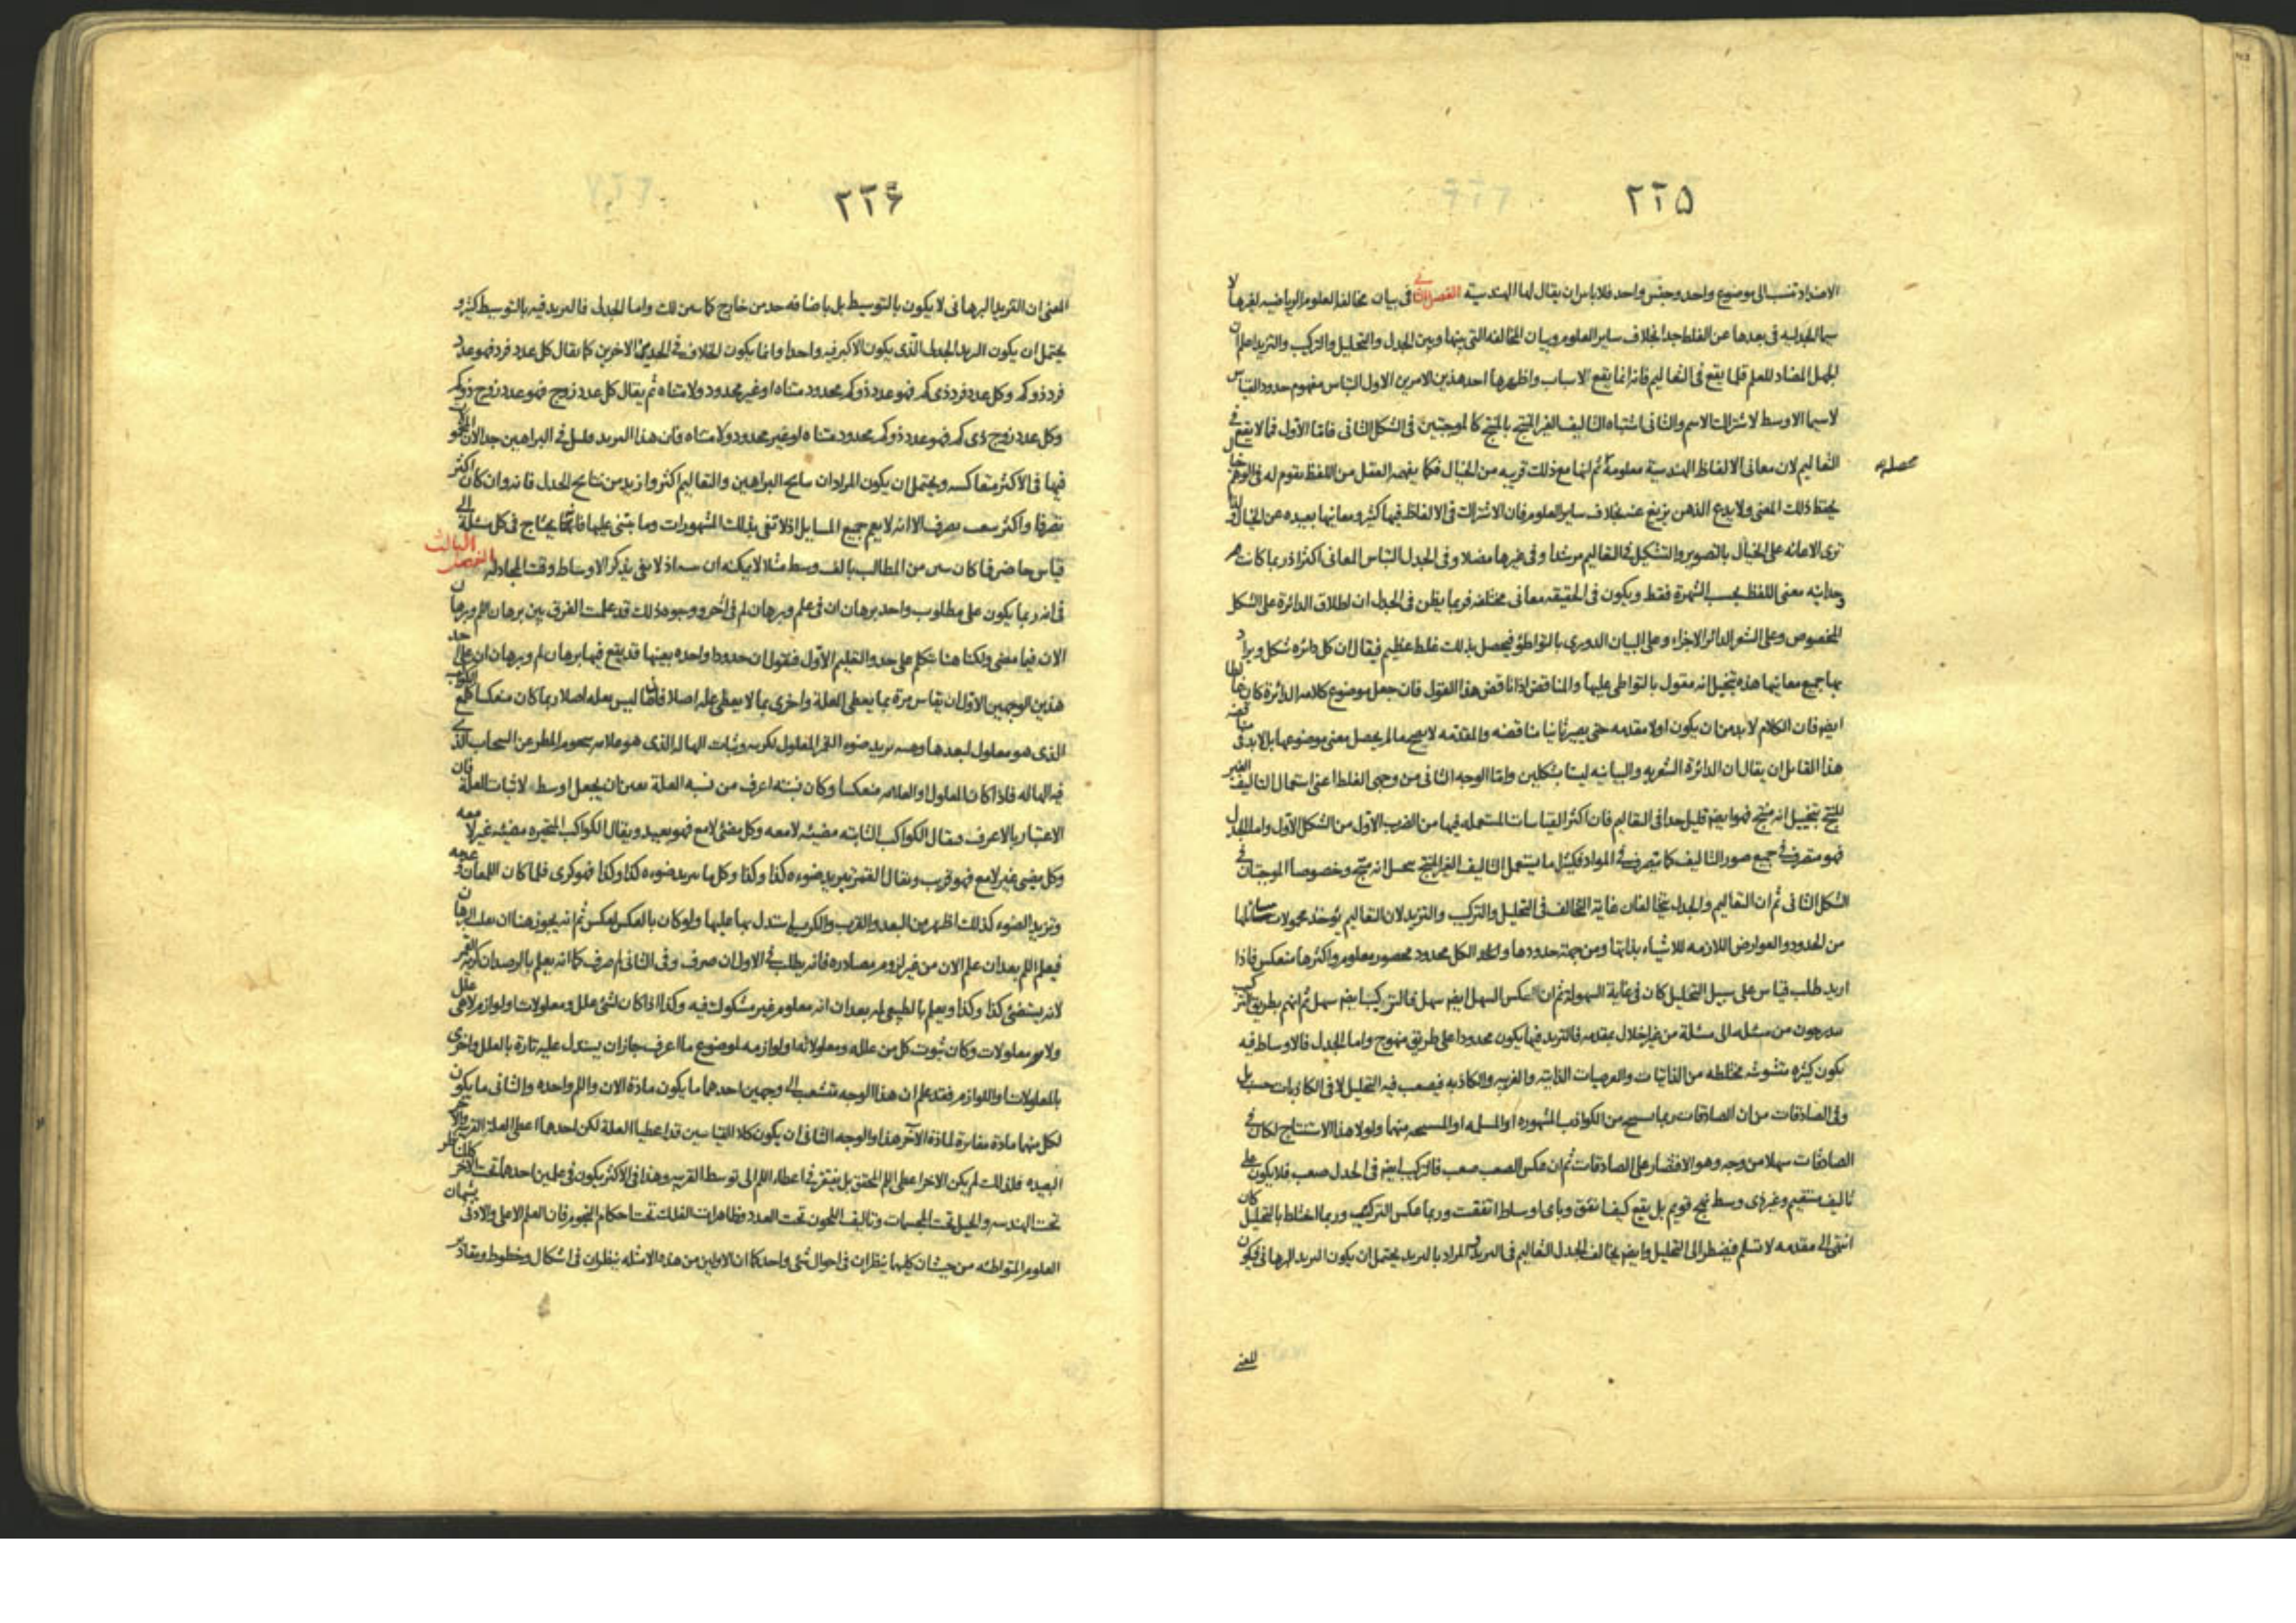 ٢٢۵
الاضداد تنسب الى موضوع واحد وجنس واحد فلا باس ان يقال لها الهندسية الفصل الثانى فى بيان مخالفة العلوم الرياضيه لغيرها لا
سيما الجدليه فى بعدها عن الغلط جدا بخلاف ساير العلوم وبيان المخالفه التى بينها وبين الجدل والتحليل والتركيب والتزيد اعلم ان
الجهل المضاد للعلم قلما يقع فى التعاليم فانه انما يقع لاسباب واظهرها احد هذين الامرين الاول التباس مفهوم حدود القياس
لا سيما الاوسط لاشتراك الاسم والثانى اشتباه التاليف الغير المنتج بالمنتج كالموجبتين فى الشكل الثانى فاما الاول فلا يقع فى
التعاليم لان معانى الالفاظ الهندسية معلومة ثم انها مع ذلك قريبه من الخيال فكما يفهم العقل من اللفظ يقوم له فى الوهم خيال
يحفظ ذلك المعنى ولا يدع الذهن يزيغ عنه بخلاف ساير العلوم فان الاشتراك فى الالفاظ فيها كثير ومعانيها بعيده عن الخيال
ترى الاعانه على الخيال بالتصوير والتشكيل فى التعاليم مرشدا وفى غيرها مضلا وفى الجدل التباس المعانى اكثر اذ ربما كانت
وحدانيه معنى اللفظ بحسب الشهرة فقط ويكون فى الحقيقه معانى مختلفه فربما يظن فى الجدل ان اطلاق الدائرة على الشكل
المخصوص وعلى الشعر الدائر الاجزاء وعلى البيان الدورى بالتواطؤ فيحصل بذلك غلط عظيم فيقال ان كل دائره شكل ويراد
بها جميع معانيها هذه بتخيل انه مقول بالتواطى عليها والمناقض اذا ناقض هذا القول فان جعل موضوع كلامه الدائرة كان غالطا
ايضا فان الكلام لا بد من ان يكون اولا مقدمه حتى يصير ثانيا مناقضه والمقدمه لا يصح مالم يحصل معنى موضوعها بل لابد فى مناقضه
هذا القائل ان يقال ان الدائرة الشعريه والبيانيه ليستا بشكلين واما الوجه الثانى من وجهى الغلط اعنى استعمال التاليف الغير
المنتج بتخييل انه منتج فهو ايضا قليل جدا فى التعاليم فان اكثر القياسات المستعمله فيها من الضرب الاول من الشكل الاول واما الجدل
فهو متصرف فى جميع صور التاليف كما يتصرف فى المواد فكثيرا ما يستعمل التاليف الغير المنتج انه منتج وخصوصا الموجبتان فى
الشكل الثانى ثم ان التعاليم والجدل يتخالفان غاية التخالف فى التحليل والتركيب والتزيد لان التعاليم يؤخذ محمولات مسائلها
من الحدود والعوارض اللازمه للاشياء بذاتها ومن جهة حدودها والكل محدود محصور معلوم واكثرها منعكس فاذا
اريد طلب قياس على سبيل التحليل كان فى غاية السهولة ثم ان عكس السهل ايضا سهل فالتركيب ايضا سهل ثم انهم بطريق التركيب
يتدرجون من مسئله الى مسئلة من غير اخلال بمقدمه فالتزيد فيها يكون محدودا على طريق منهوج واما الجدل فالاوساط فيه
يكون كثيره متشوشه مختلطه من الذاتيات والعرضيات الذاتيه والغريبه والكاذبه فيصعب فيه التحليل لا فى الكاذبات حسب بل
وفى الصادقات من ان الصادقات ربما من الكواذب المشهوره او المسلمه او منهما ولولا هذا الاستنتاج لكان فى
الصادقات سهلا من وجه وهو الاقتصار على الصادقات ثم ان عكس الصعب صعب فالتركيب ايضا فى الجدل صعب فلا يكون على
تاليف مستقيم وغير ذى وسط نهج قويم بل يقع كيفما تفق وباى اوساط اتفقت وربما عكس التركيب وربما اختلط بالتحليل كان
انتهى الى مقدمه لا تسلم فيضطر الى التحليل وايضا يخالف الجدل التعاليم فى التزيد والمراد بالتزيد يحتمل ان يكون التزيد البرهانى فيكون
المعنى
٢٢۶
المعنى ان التزيد البرهانى لا يكون بالتوسيط بل باضافه حد من خارج واما الجدل فالتزيد فيه بالتوسيط كثير و
يحتمل ان يكون التزيد الجدل الذى يكون الاكبر فيه واحدا وانما يكون الخلاف فى الحدين الاخرين كما يقال كل عدد فرد فهو عدد
فرد ذو كم وكل عدد فرد ذى كم فهو عدد ذو كم محدود متناه او غير محدود ولا متناه ثم يقال كل عدد زوج فهو عدد زوج ذو كم
وكل عدد زوج ذى كم فهو عدد ذو كم محدود متناه او غير محدود ولا متناه فان هذا التزيد قليل فى البراهين جدا لان
فيها فى الاكثر متعاكسه ويحتمل ان يكون المراد ان نتايج البراهين والتعاليم اكثر وازيد من نتايج الجدل فانه وان كان اكثر
تصرفا واكثر تصرف الا انه لا يعم جميع المسايل اذ لا تفى بذلك المشهورات وما يبتنى عليها فانما يحتاج فى كل مسئلة الى
قياس حاضر من المطالب بالف وسط مثلا لا يمكنه ان اذ لا يفى بذكر الاوساط وقت المجادله الفصل الثالث
فى انه ربما يكون على مطلوب واحد برهان ان فى علم وبرهان لم فى آخر ووجوه ذلك قد علمت الفرق بين برهان اللم وبرهان
الان فيما مضى ولكنا هنا نتكلم على حدو التعليم الاول فنقول ان حدودا واحده بعينها قد يقع فيها برهان لم وبرهان ان على احد
هذين الوجهين الاول ان يقاس مرة بما يعطى العلة واخرى بما لا يعطى عله اصلا فان ما ليس بعله اصلا ربما كان منعكسا كلمع الكواكب
الذى هو معلول لبعدها وهيئه تزيد ضوء القمر المعلول لكريته وثبات الهاله الذى هو علامه المطر عن السحاب الذى
فيه الهاله فاذا كان المعلول او العلامه منعكسا وكان نسبته اعرف من نسبه العلة تعين ان يجعل اوسط لاثبات العلة فان
الاعتبار بالاعرف فيقال الكواكب الثابته مضيئه لامعه وكل مضئى لامع فهو بعيد ويقال الكواكب المتحيره مضيئه غير لامعه
وكل مضيئ غير لامع فهو قريب ويقال القمر يتزيد ضوءه كذا وكذا وكل ما يتزيد ضوءه كذا وكذا فهو كرى فلما كان اللمعان وعدمه
وتزيد الضوء كذلك اظهر من البعد والقرب والكريه استدل بها عليها ولو كان بالعكس لعكس ثم انه يجوز هنا ان يقلب البرهان
فيعطى اللم بعد ان علم الان من غير لزوم مصادره فانه يطلب فى الاول ان صرف وفى الثانى لم صرف كما انه يعلم بالرصد ان القمر كرى
لانه يستضئ كذا وكذا ويعلم بالطبيعى لم بعد ان انه معلوم غير مشكوك فيه وكذا اذا كان لشئ علل ومعلولات ولوازم لا هى علل
ولا هى معلولات وكان ثبوت كل من علله ومعلولاته ولوازمه لموضوع ما اعرف جاز ان يستدل عليه تارة بالعلل واخرى
بالمعلولات او اللوازم فقد علم ان هذا الوجه متشعب الى وجهين احدهما ما يكون مادة الان واللم واحده والثانى ما يكون
لكل منهما مادة مغايرة لمادة الآخر هذا والوجه الثانى ان يكون كلا القياسين قد اعطيا العلة لكن احدهما اعطى العلة القريبه والآخر
البعيده فلذلك لم يكن الاخر اعطى اللم المحقق بل يفتقر فى اعطاء اللم الى توسط القريبه وهذا فى الاكثر يكون فى علمين احدهما تحت الآخر كالمناظر
تحت الهندسه والحيل تحت المجسمات وتاليف اللحون تحت العدد وظاهرات الفلك تحت احكام النجوم فان العلم الاعلى والادنى يشبهان
العلوم المتواطئه من حيث ان كليهما ينظران فى احوال شئ واحد كما ان الاولين من هذه الامثله ينظران فى اشكال وخطوط ومقادير